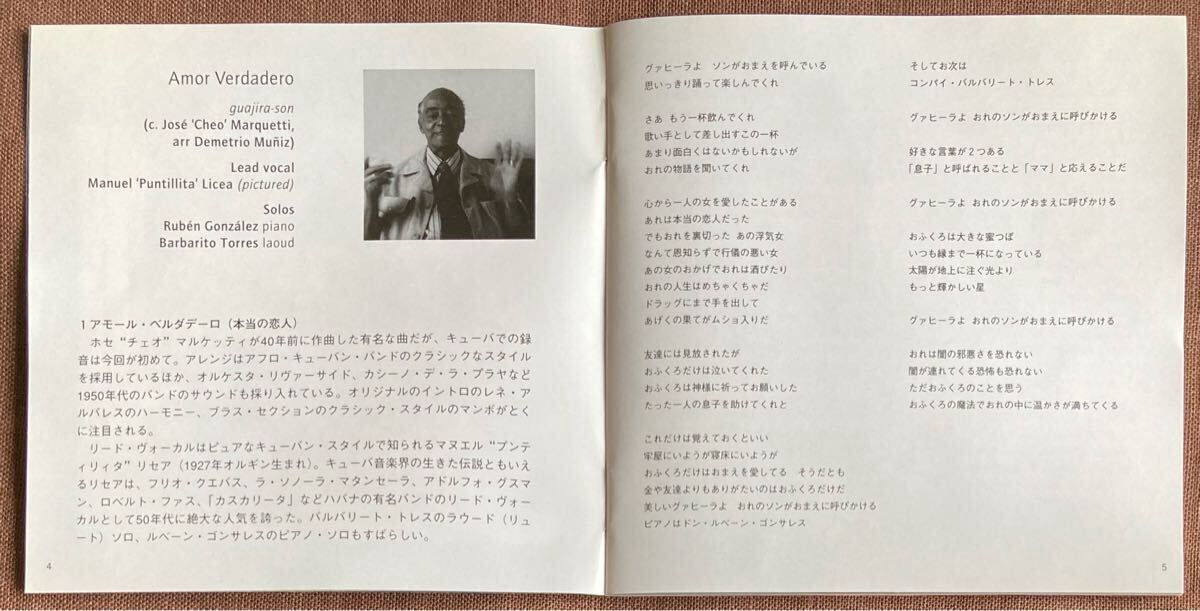 Amor Verdadero
guajira-son
(c. José 'Cheo' Marquetti,
arr Demetrio Muñiz)
Lead vocal
Manuel 'Puntillita' Licea (pictured)
Solos
Rubén González piano
Barbarito Torres laoud
1 アモール・ベルダデーロ（本当の恋人）
ホセ“チェオ”マルケッティが40年前に作曲した有名な曲だが、キューバでの録
音は今回が初めて。アレンジはアフロ・キューバン・バンドのクラシックなスタイル
を採用しているほか、オルケスタ・リヴァーサイド、カシーノ・デ・ラ・プラヤなど
1950年代のバンドのサウンドも採り入れている。オリジナルのイントロのレネ・ア
ルバレスのハーモニー、ブラス・セクションのクラシック・スタイルのマンボがとく
に注目される。
リード・ヴォーカルはピュアなキューバン・スタイルで知られるマヌエル“プンテ
ィリィタ”リセア（1927年オルギン生まれ）。キューバ音楽界の生きた伝説ともいえ
るリセアは、フリオ・クエバス、ラ・ソノーラ・マタンセーラ、アドルフォ・グスマ
ン、ロベルト・ファス、「カスカリータ」などハバナの有名バンドのリード・ヴォー
カルとして50年代に絶大な人気を誇った。バルバリート・トレスのラウード（リュ
ート）ソロ、ルベーン・ゴンサレスのピアノ・ソロもすばらしい。
4
グァヒーラよ　ソンがおまえを呼んでいる
思いっきり踊って楽しんでくれ
さあ　もう一杯飲んでくれ
歌い手として差し出すこの一杯
あまり面白くはないかもしれないが
おれの物語を聞いてくれ
心から一人の女を愛したことがある
あれは本当の恋人だった
でもおれを裏切った　あの浮気女
なんて恩知らずで行儀の悪い女
あの女のおかげでおれは酒びたり
おれの人生はめちゃくちゃだ
ドラッグにまで手を出して
あげくの果てがムショ入りだ
友達には見放されたが
おふくろだけは泣いてくれた
おふくろは神様に祈ってお願いした
たった一人の息子を助けてくれと
これだけは覚えておくといい
牢屋にいようが寝床にいようが
おふくろだけはおまえを愛してる　そうだとも
金や友達よりもありがたいのはおふくろだけだ
美しいグァヒーラよ　おれのソンがおまえに呼びかける
ピアノはドン・ルベーン・ゴンサレス
そしてお次は
コンパイ・バルバリート・トレス
グァヒーラよ　おれのソンがおまえに呼びかける
好きな言葉が２つある
「息子」と呼ばれることと「ママ」と応えることだ
グァヒーラよ　おれのソンがおまえに呼びかける
おふくろは大きな蜜つぼ
いつも縁まで一杯になっている
太陽が地上に注ぐ光より
もっと輝かしい星
グァヒーラよ　おれのソンがおまえに呼びかける
おれは闇の邪悪さを恐れない
闇が連れてくる恐怖も恐れない
ただおふくろのことを思う
おふくろの魔法でおれの中に温かさが満ちてくる
5